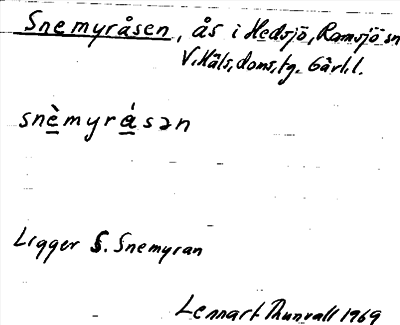 Snemyråsen, ås i Hedsjö, Ramsjö sn
V. Häls. doms, tg. Gävl.l.
snèmyrásən
Ligger S. Snemyran
Lennart Thunvall 1969